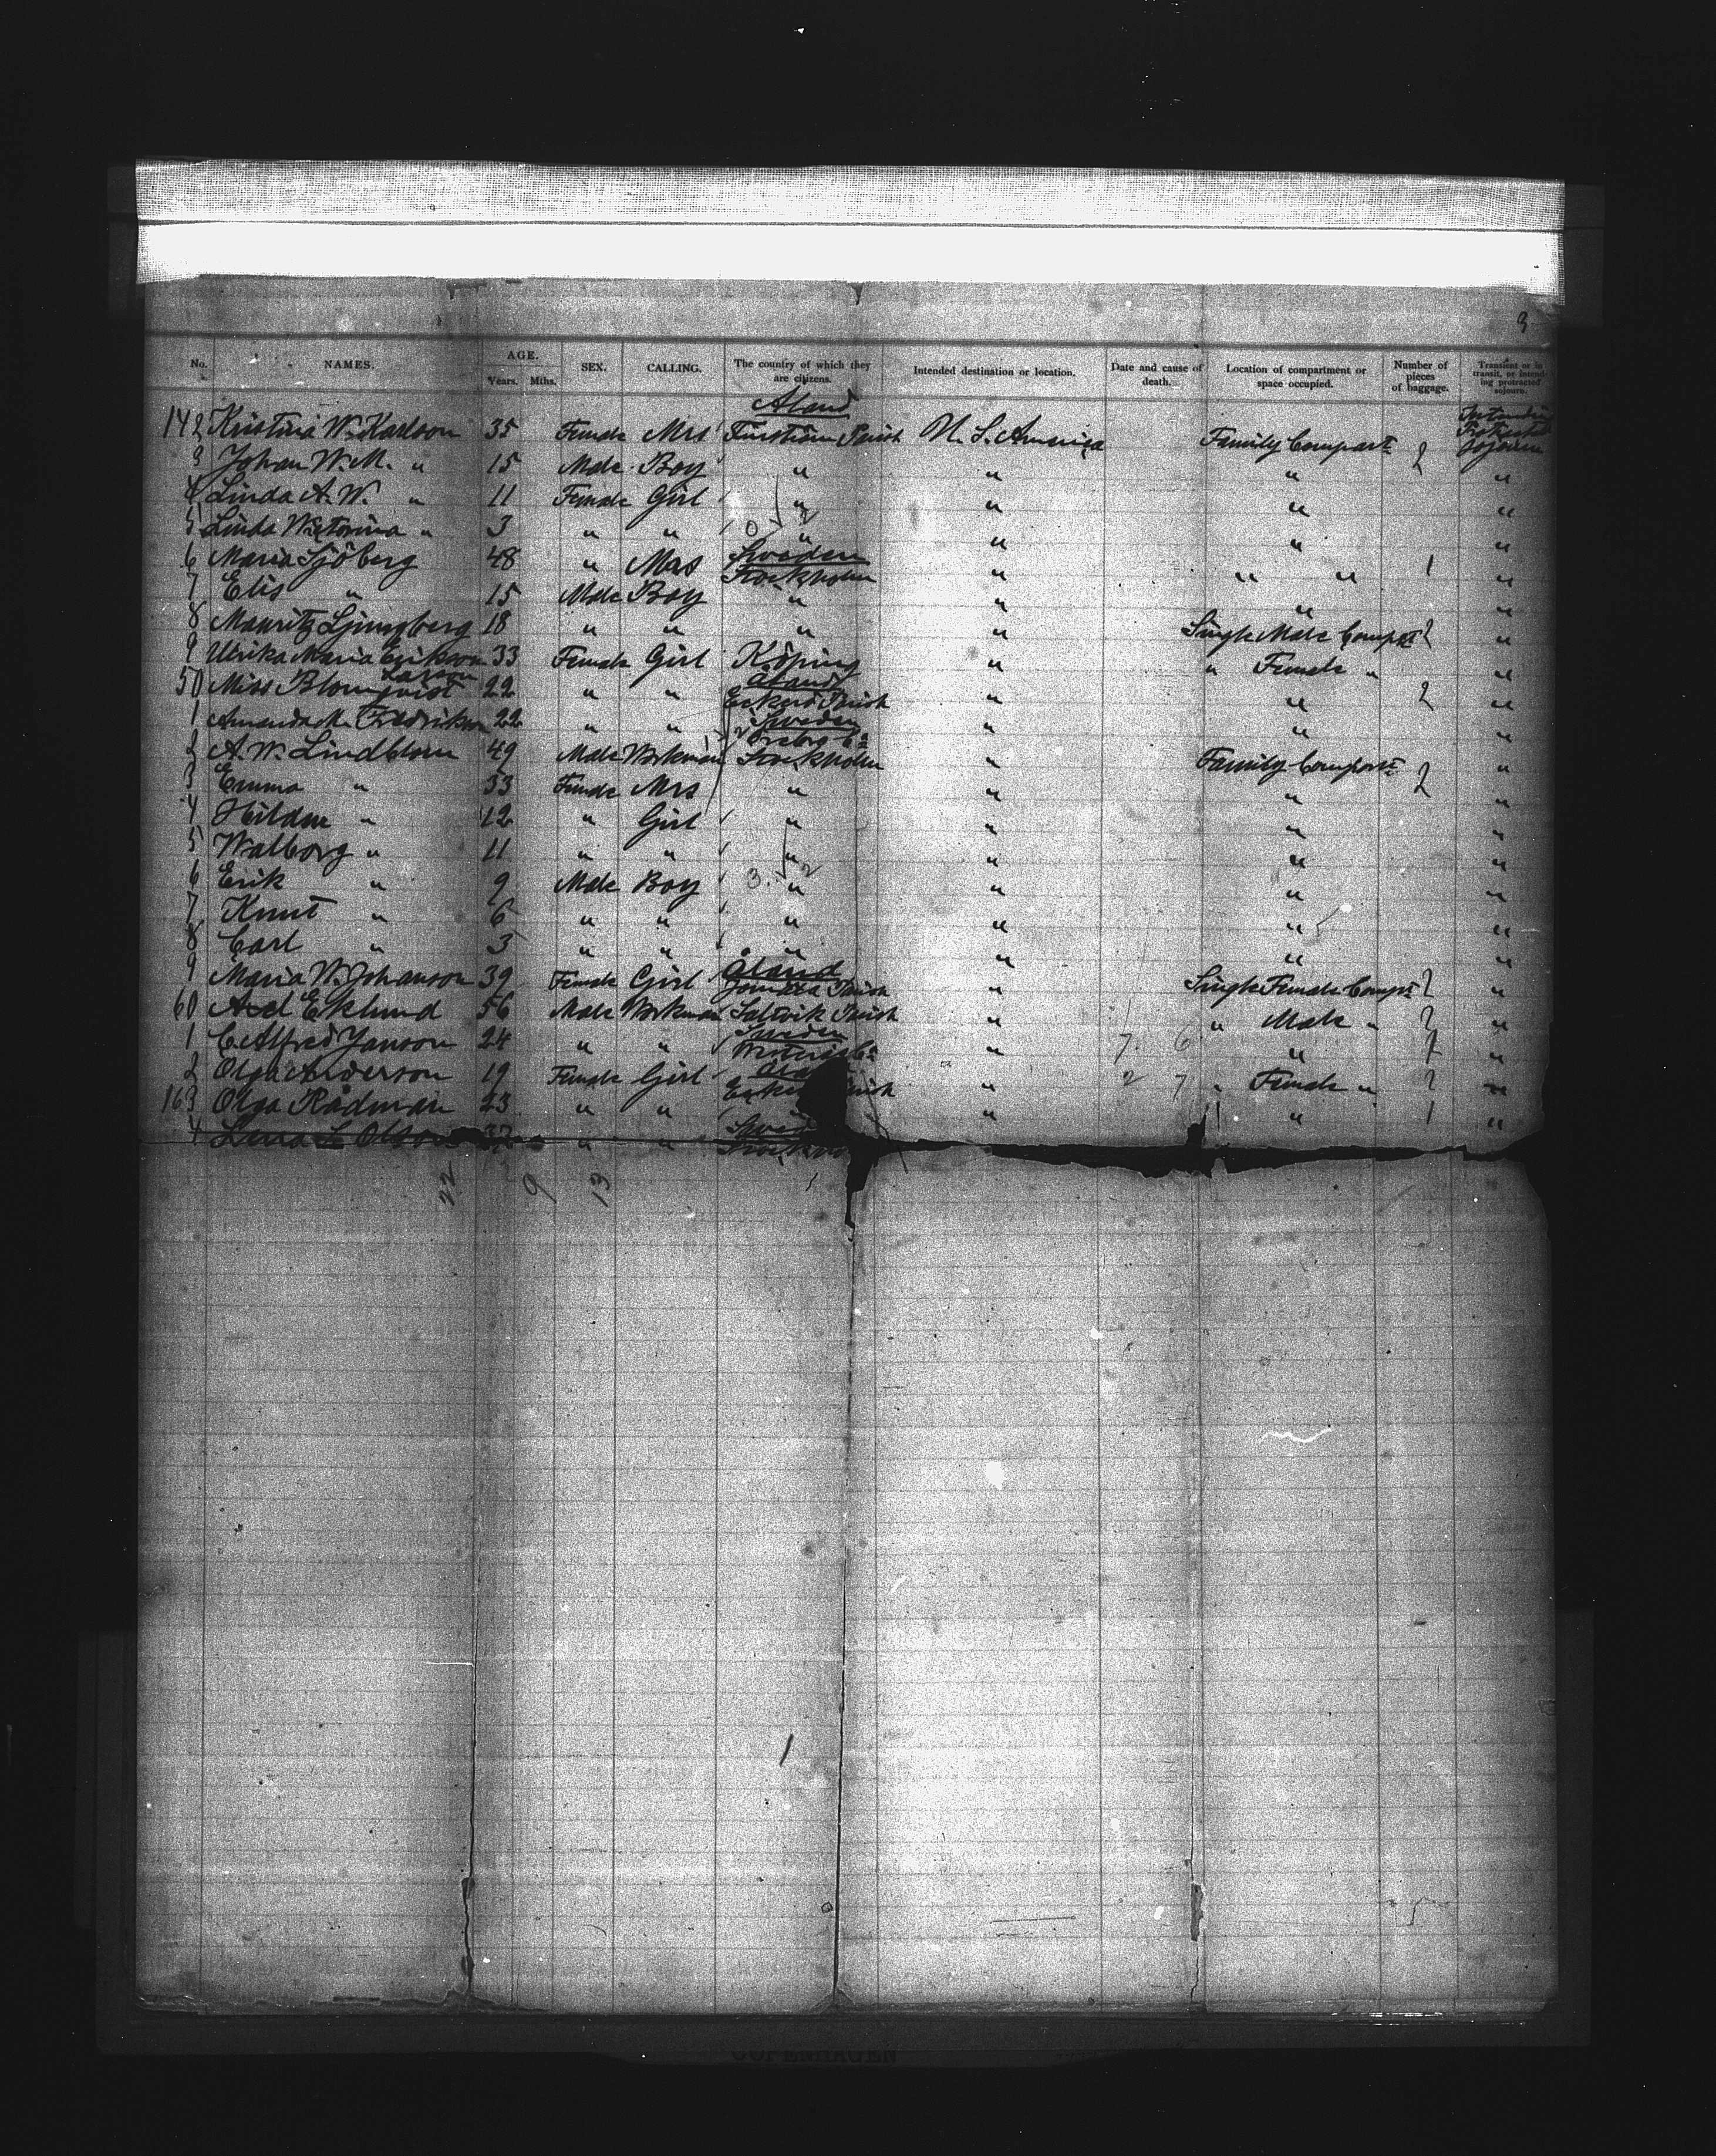 3
No. NAMES. AGE. Years. Mths. SEX. CALLING. The country of which they are citizens. Intended destination or location. Date and cause of death. Location of compartment or space occupied. Number of pieces of baggage. Transient or in transit, or intending protracted sojourn.
Åland
142 Kristina W. Karlson 35 Female Mrs Parish U. S. America Family Compart Sojourn
3 Johan W. M. " 15 Male Boy " " " 2 "
4 Linda A. W. " 11 Female Girl " " " "
5 Linda " 3 " " " " " "
6 Maria Sjöberg 48 " Mrs Sweden Stockholm " " " 1 "
7 Elis " 15 Male Boy " " " "
8 Mauritz Ljungberg 18 " " " " Single Male Compt "
9 Ulrika Maria Erikson 33 Female Girl Köping " " Female " "
Larson
50 Miss Blomqvist 22 " " Åland Eckerö Parish " " 2 "
1 Amanda M. Fredrikson 22 " " Sweden " " "
2 A. W. Lindblom 49 Male Workman Stockholm " Family Compart "
3 Emma " 33 Female Mrs " " " 2 "
4 " 12 " Girl " " " "
5 Walborg " 11 " " " " " "
6 Erik " 9 Male Boy " " " "
7 Knut " 6 " " " " " "
8 Carl " 3 " " " " " "
9 Maria W. Johanson 39 Female Girl Åland Parish " Single Female Compt "
60 Axel Eklund 56 Male Workman Saltvik Parish " " Male " "
1 C. Alfred Janson 24 " " Sweden " 7 6 " 1 "
2 Olga Anderson 19 Female Girl " 2 7 " Female " "
163 Olga Rådman 23 " " " " 1 "
4 Olson 37 " "
22 9 13